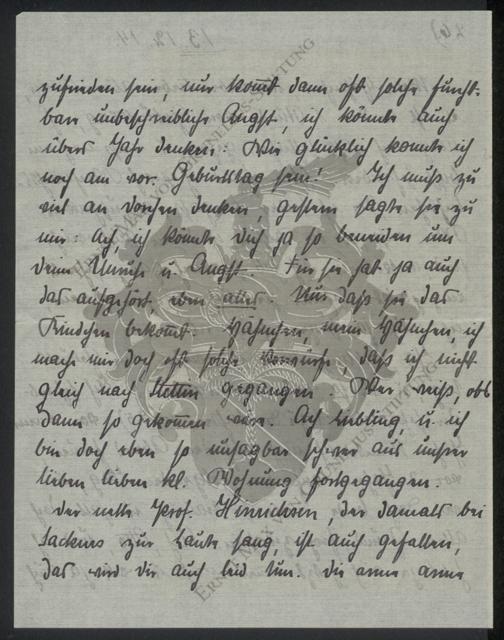 zufrieden sein, nur kom̅t dann oft solche furcht-
bare unbeschreibliche Angst, ich könnte auch
übers Jahr denken: Wie glücklich konnte ich
noch am vor. Geburtstag sein! Ich muss zu
viel an Dorchen denken, gestern sagte sie zu
mir: Ach, ich könnte Dich ja so beneiden um
deine Unruhe u. Angst. Für sie hat ja auch
das aufgehört, eben alles. Nur daß sie das
Kindchen bekom̅t. Hähnchen, mein Hähnchen, ich
mache mir doch oft solche Vorwürfe, daß ich nicht
gleich nach Stettin gegangen. Wer weiß, obs
dann so gekom̅en wäre. Ach Liebling, u. ich
bin doch eben so unsagbar schwer aus unsrer
lieben lieben kl. Wohnung fortgegangen.
Der nette Prof. Hinrichsen, der damals bei
Sackurs zur Laute sang, ist auch gefallen,
das wird dir auch leid tun. Die arme arme
13.12.14